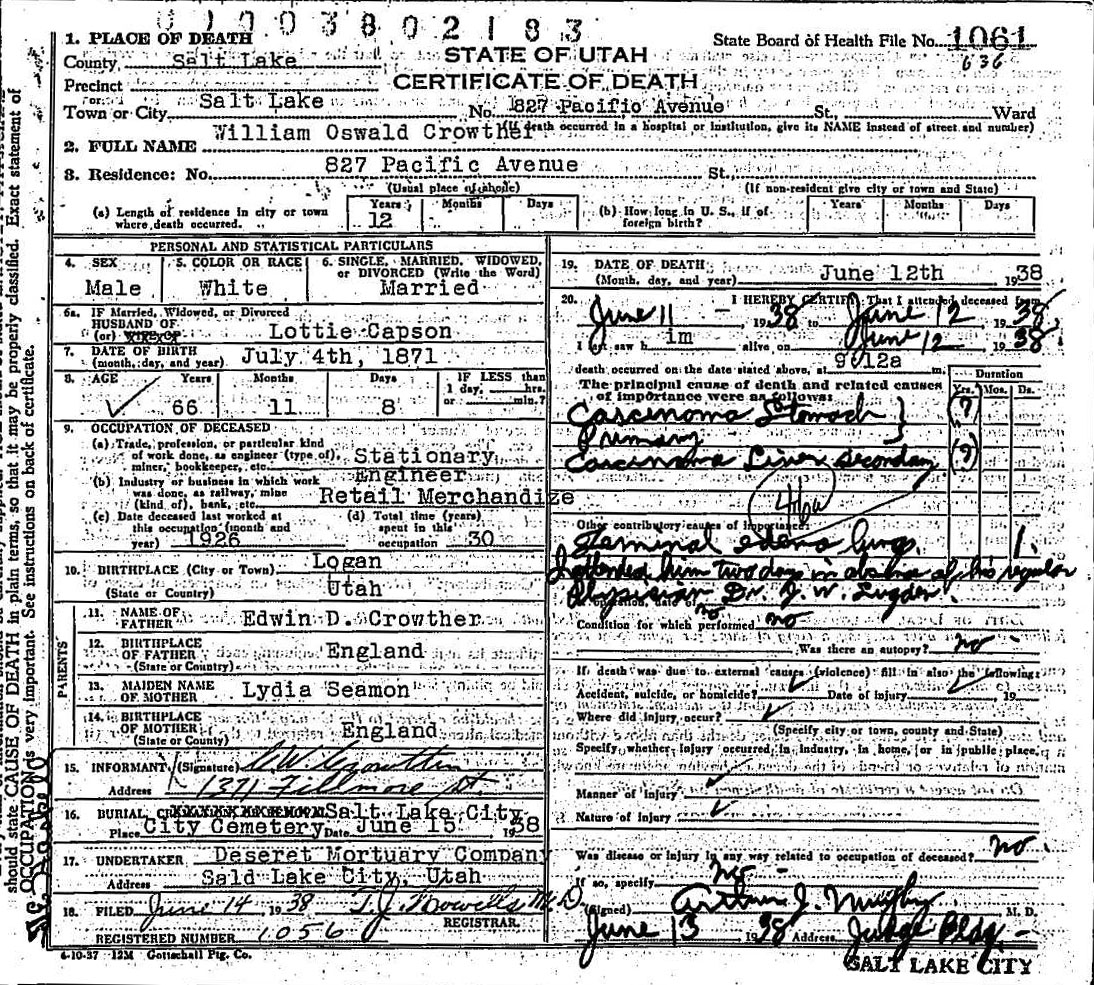 01 0 0 3 8 0 2 1 8 3
1. PLACE OF DEATH
State Board of Health File No. 1061
636
County Salt Lake
STATE OF UTAH
Precinct
CERTIFICATE OF DEATH
or
Town or City Salt Lake No. 827 Pacific Avenue St., Ward
(If death occurred in a hospital or institution, give its NAME instead of street and number)
2. FULL NAME William Oswald Crowther
3. Residence: No. 827 Pacific Avenue St.
(Usual place of abode) (If non-resident give city or town and State)
(a) Length of residence in city or town where death occurred. Years 12 Months Days
(b) How long in U. S., if of foreign birth? Years Months Days
PERSONAL AND STATISTICAL PARTICULARS
4. SEX Male
5. COLOR OR RACE White
6. SINGLE, MARRIED, WIDOWED, or DIVORCED (Write the Word) Married
6a. IF Married, Widowed, or Divorced
HUSBAND OF
(or) WIFE OF Lottie Capson
7. DATE OF BIRTH
(month, day, and year) July 4th, 1871
8. AGE Years 66 Months 11 Days 8 IF LESS than 1 day, hrs. or min.?
9. OCCUPATION OF DECEASED
(a) Trade, profession, or particular kind
of work done, as engineer (type of),
miner, bookkeeper, etc. Stationary Engineer
(b) Industry or business in which work
was done, as railway, mine
(kind of), bank, etc. Retail Merchandize
(c) Date deceased last worked at
this occupation (month and
year) 1926
(d) Total time (years)
spent in this
occupation 30
10. BIRTHPLACE (City or Town) Logan
(State or Country) Utah
PARENTS
11. NAME OF
FATHER Edwin D. Crowther
12. BIRTHPLACE
OF FATHER England
(State or Country)
13. MAIDEN NAME
OF MOTHER Lydia Seamon
14. BIRTHPLACE
OF MOTHER England
(State or Country)
15. INFORMANT (Signature) Crowther
Address 1371 Fillmore St.
16. BURIAL, CREMATION OR REMOVAL Salt Lake City
Place City Cemetery Date June 15 1938
17. UNDERTAKER Deseret Mortuary Company
Address Sald Lake City, Utah
18. FILED June 14, 1938 T. J. Howells M.D.
REGISTRAR.
REGISTERED NUMBER 1056
4-10-37 12M Gottschall Ptg. Co.
19. DATE OF DEATH
(Month, day, and year) June 12th 1938
20. I HEREBY CERTIFY, That I attended deceased from
June 11, 1938 to June 12 1938
I last saw him alive on June 12 1938
death occurred on the date stated above, at 9:12a m.
The principal cause of death and related causes
of importance were as follows: Duration Yrs. Mos. Ds.
Carcinoma Stomach (?)
Primary
Carcinoma Liver Secondary (?)
46a
Other contributory causes of importance:
Terminal edema lungs. 1.
I attended him two days in absence of his regular
physician Dr.
If operation, date of no
Condition for which performed no
Was there an autopsy? no
If death was due to external causes (violence) fill in also the following:
Accident, suicide, or homicide? Date of injury 19
Where did injury occur?
(Specify city or town, county and State)
Specify whether injury occurred in industry, in home, or in public place,
Manner of injury
Nature of injury
Was disease or injury in any way related to occupation of deceased? no
If so, specify no
(Signed) Arthur J. Murphy M. D.
June 13 1938 Address Judge Bldg.
SALT LAKE CITY
should state CAUSE OF DEATH in plain terms, so that it may be properly classified. Exact statement of
OCCUPATION is very important. See instructions on back of certificate.